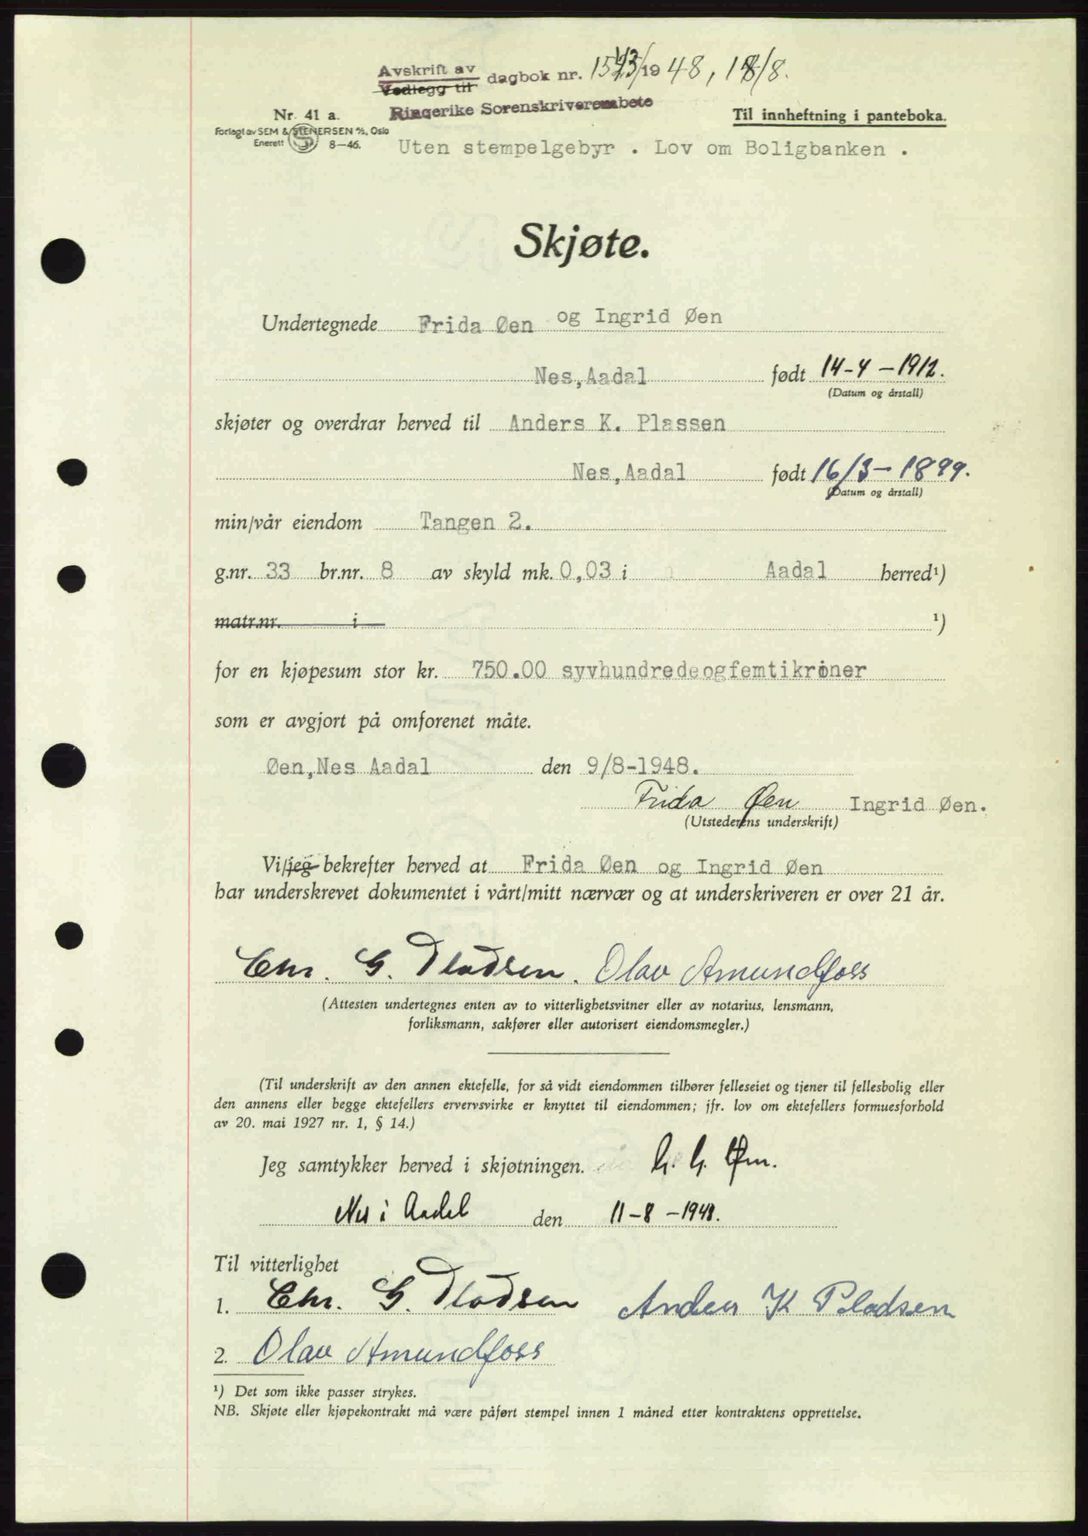 Avskrift av
Vedlegg til dagbok nr. 1543/1948, 18/8.
Ringerike Sorenskriverembete
Nr. 41 a.
Til innheftning i panteboka.
Forlagt av SEM & STENERSEN A/S, Oslo
Enerett 8-46.
Uten stempelgebyr . Lov om Boligbanken .
Skjøte.
Undertegnede Frida Øen og Ingrid Øen
Nes, Aadal født 14-4-1912.
(Datum og årstall)
skjøter og overdrar herved til Anders K. Plassen
Nes, Aadal født 16/3-1899.
(Datum og årstall)
min/vår eiendom Tangen 2.
g.nr. 33 br.nr. 8 av skyld mk. 0,03 i Aadal herred¹)
matr.nr. i ¹)
for en kjøpesum stor kr. 750.00 syvhundredeogfemtikroner
som er avgjort på omforenet måte.
Øen, Nes Aadal den 9/8-1948.
Frida Øen Ingrid Øen.
(Utstederens underskrift)
Vi/jeg bekrefter herved at Frida Øen og Ingrid Øen
har underskrevet dokumentet i vårt/mitt nærvær og at underskriveren er over 21 år.
Chr. G. Pladsen. Olav Amundfoss
(Attesten undertegnes enten av to vitterlighetsvitner eller av notarius, lensmann,
forliksmann, sakfører eller autorisert eiendomsmegler.)
(Til underskrift av den annen ektefelle, for så vidt eiendommen tilhører felleseiet og tjener til fellesbolig eller
den annens eller begge ektefellers ervervsvirke er knyttet til eiendommen; jfr. lov om ektefellers formuesforhold
av 20. mai 1927 nr. 1, § 14.)
Jeg samtykker herved i skjøtningen. G. G. Øen.
Nes i Aadal den 11-8-1948.
Til vitterlighet
1. Chr. G. Pladsen Anders K Pladsen
2. Olav Amundfoss
¹) Det som ikke passer strykes.
NB. Skjøte eller kjøpekontrakt må være påført stempel innen 1 måned etter kontraktens opprettelse.